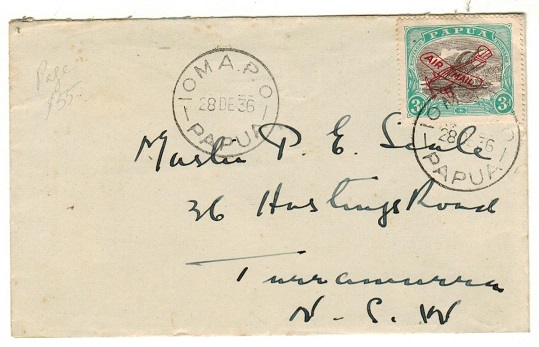 PAPUA
AIR MAIL
3d 3d
IOMA. P.O
28 DE 36
PAPUA
IOMA. P.O
28 DE 36
PAPUA
Page
£35-
Master P. E. Scale
36 Hastings Road
Turramurra
N. S. W